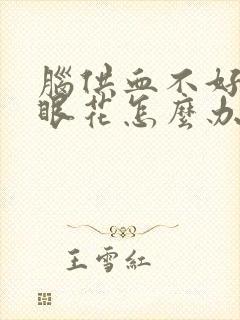 腦供血不好
眼花怎麼办
王雪紅